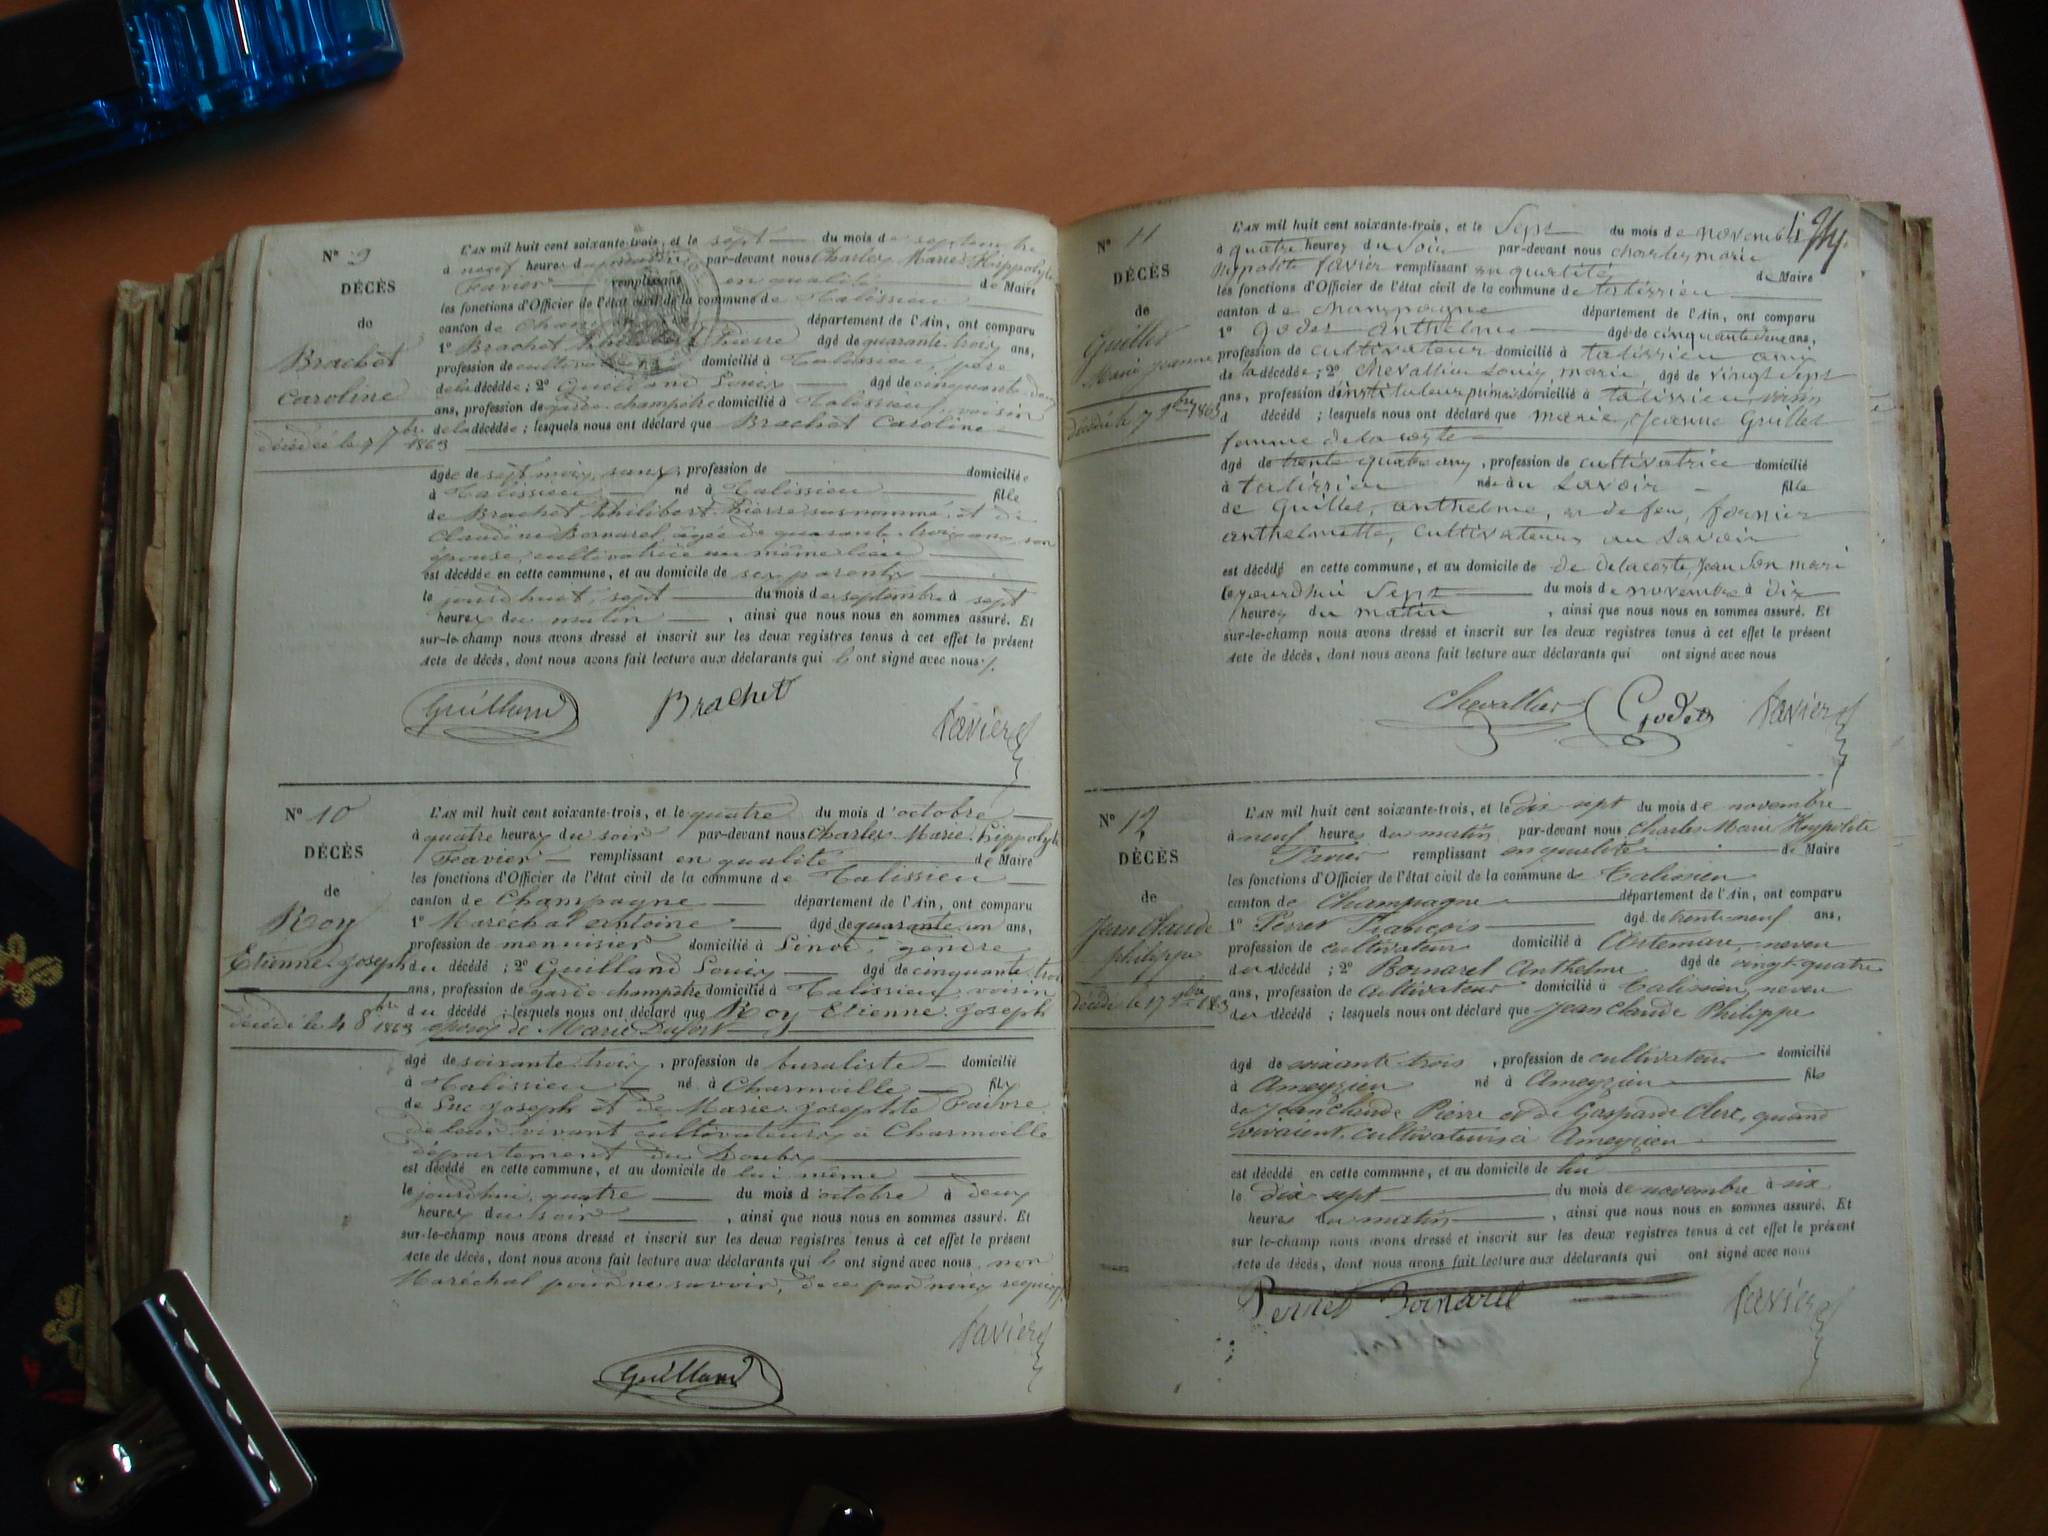 N° 9
DÉCÈS
de
Brachet
Caroline
décédée le 7 7bre 1863
L'AN mil huit cent soixante-trois, et le sept du mois de septembre
à neuf heures du matin par-devant nous Charles Marie Hippolyte
Favier remplissant en qualité de Maire
les fonctions d'Officier de l'état civil de la commune de Talissieu
canton de département de l'Ain, ont comparu
1° Brachet Philibert Pierre âgé de quarante trois ans,
profession de domicilié à Talissieu, père
de la décédée ; 2° Guilland Louis âgé de cinquante deux
ans, profession de garde champêtre domicilié à Talissieu, voisin
de la décédée ; lesquels nous ont déclaré que Brachet Caroline
âgée de sept mois, sans profession de domiciliée
à Talissieu né à Talissieu fille
de Brachet Philibert Pierre susnommé et de
Claudine Bornarel, âgée de quarante trois ans, son
épouse, cultivatrice au même lieu
est décédée en cette commune, et au domicile de ses parents
le jourdhuit, sept du mois de septembre à sept
heures du matin , ainsi que nous nous en sommes assuré. Et
sur-le-champ nous avons dressé et inscrit sur les deux registres tenus à cet effet le présent
acte de décès, dont nous avons fait lecture aux déclarants qui l'ont signé avec nous
Guilland Brachet Favier
N° 10
DÉCÈS
de
Roy
Etienne Joseph
décédé le 4 8bre 1863
L'AN mil huit cent soixante-trois, et le quatre du mois d'octobre
à quatre heures du soir par-devant nous Charles Marie Hippolyte
Favier remplissant en qualité de Maire
les fonctions d'Officier de l'état civil de la commune de Talissieu
canton de Champagne département de l'Ain, ont comparu
1° Maréchal Antoine âgé de quarante un ans,
profession de menuisier domicilié à gendre
du décédé ; 2° Guilland Louis âgé de cinquante trois
ans, profession de garde champêtre domicilié à Talissieu, voisin
du décédé ; lesquels nous ont déclaré que Roy Etienne Joseph
époux de Marie
âgé de soixante trois, profession de buraliste domicilié
à Talissieu né à Charmoille fils
de Luc Joseph et de Marie Josephte Faivre
de leur vivant cultivateurs à Charmoille
département du Doubs
est décédé en cette commune, et au domicile de lui même
le jourdhui quatre du mois d'octobre à deux
heures du soir , ainsi que nous nous en sommes assuré. Et
sur-le-champ nous avons dressé et inscrit sur les deux registres tenus à cet effet le présent
acte de décès, dont nous avons fait lecture aux déclarants qui l'ont signé avec nous non
Maréchal pour ne savoir, de ce par nous requis
Favier
Guilland
N° 11
DÉCÈS
de
Guillet
Marie Jeanne
décédé le 7 9bre 1863
L'AN mil huit cent soixante-trois, et le Sept du mois de novembre
à quatre heures du Soir par-devant nous charles marie
hippolite favier remplissant en qualité de Maire
les fonctions d'Officier de l'état civil de la commune de talissieu
canton de champagne département de l'Ain, ont comparu
1° Godet anthelme âgé de cinquante deux ans,
profession de cultivateur domicilié à talissieu ami
de la décédée ; 2° chevallier Louis marie âgé de vingt sept
ans, profession d'instituteur primaire domicilié à talissieu voisin
d décédé ; lesquels nous ont déclaré que marie, Jeanne Guillet
femme delacoste
âgé de trente quatre ans, profession de cultivatrice domicilié
à talissieu née au Savoir fille
de Guillet, anthelme, et de feu, fournier
anthelmette, cultivateurs au Savoir
est décédé en cette commune, et au domicile de de delacoste, Jean Son mari
le jourdhui Sept du mois de novembre à dix
heures du matin , ainsi que nous nous en sommes assuré. Et
sur-le-champ nous avons dressé et inscrit sur les deux registres tenus à cet effet le présent
acte de décès, dont nous avons fait lecture aux déclarants qui ont signé avec nous
Chevallier Godet Favier
N° 12
DÉCÈS
de
Jean Claude
philippe
décédé le 17 9bre 1863
L'AN mil huit cent soixante-trois, et le dix sept du mois de novembre
à neuf heures du matin par-devant nous Charles Marie Hyppolite
Favier remplissant en qualité de Maire
les fonctions d'Officier de l'état civil de la commune de Talissieu
canton de Champagne département de l'Ain, ont comparu
1° Perret François âgé de trente-neuf ans,
profession de cultivateur domicilié à Artemare, neveu
du décédé ; 2° Bornarel Anthelme âgé de vingt-quatre
ans, profession de Cultivateur domicilié à Talissieu, neveu
du décédé ; lesquels nous ont déclaré que Jean Claude Philippe
âgé de soixante trois , profession de cultivateur domicilié
à Ameyzieu né à Ameyzieu fils
de Jean Claude Pierre et de Gasparde Clerc, quand
vivaient cultivateurs à Ameyzieu
est décédé en cette commune, et au domicile de lui
le dix sept du mois de novembre à six
heures du matin , ainsi que nous nous en sommes assuré. Et
sur-le-champ nous avons dressé et inscrit sur les deux registres tenus à cet effet le présent
acte de décès, dont nous avons fait lecture aux déclarants qui ont signé avec nous
Perret Bornarel Favier